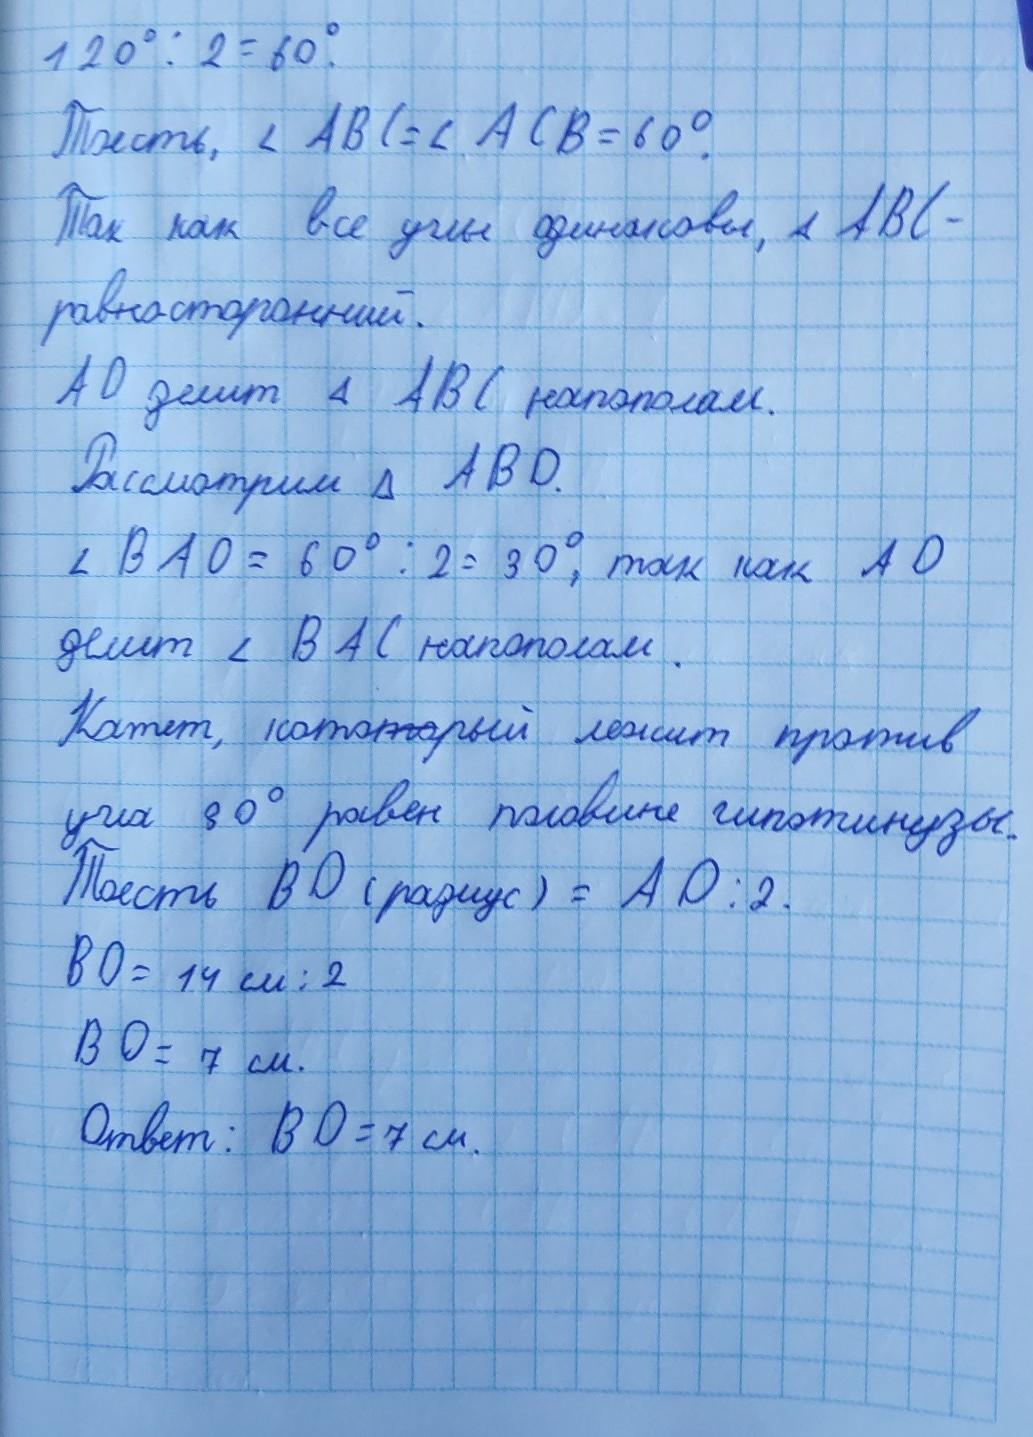 120° : 2 = 60°.
Тоесть, ∠ ABC = ∠ ACB = 60°.
Так как все углы одинаковы, △ ABC -
равносторонний.
AO делит △ ABC напополам.
Рассмотрим △ ABO.
∠ BAO = 60° : 2 = 30°, так как AO
делит ∠ BAC напополам.
Катет, который лежит против
угла 30° равен половине гипотинузы.
Тоесть BO (радиус) = AO : 2.
BO = 14 см : 2
BO = 7 см.
Ответ: BO = 7 см.